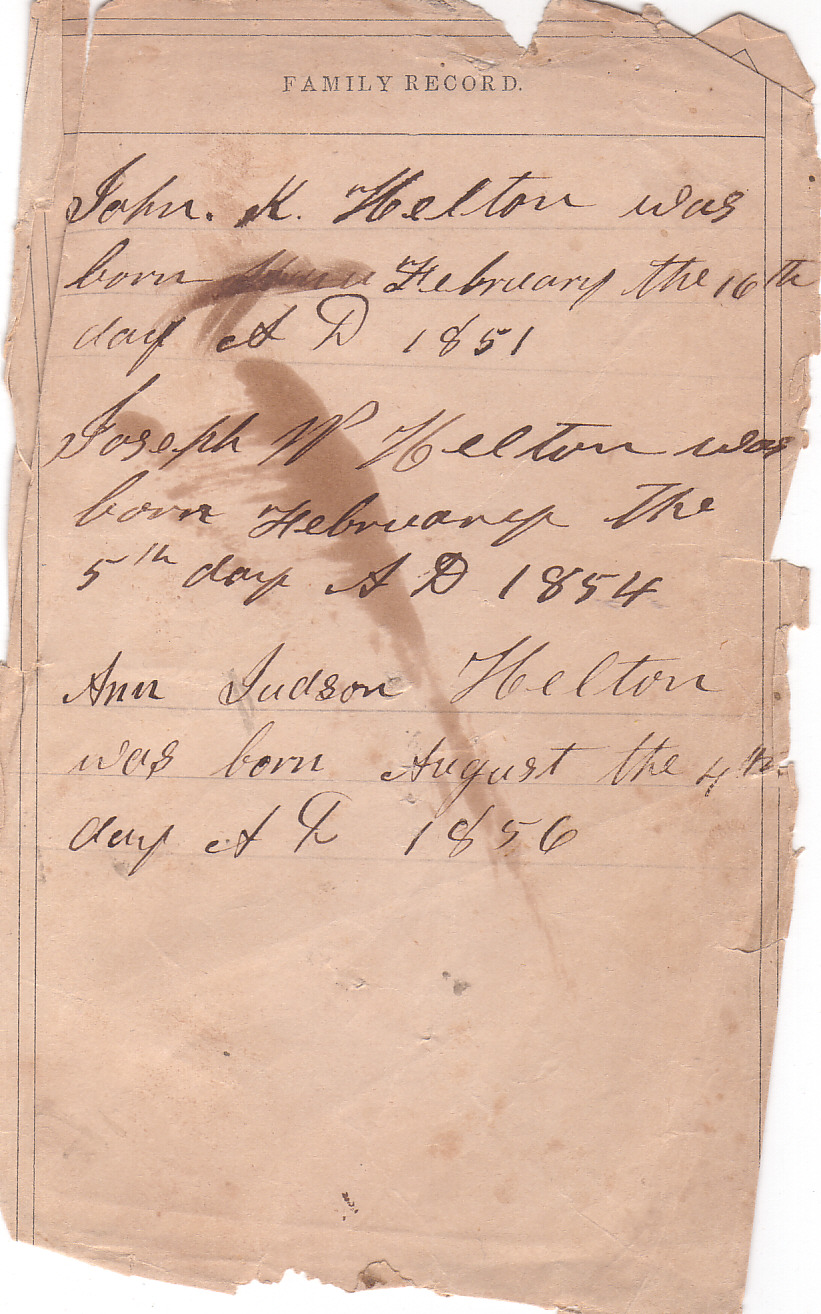 FAMILY RECORD.
John. K. Helton was
born February the 16th
day A D 1851
Joseph W Helton was
born February The
5th day A D 1854
Ann Judson Helton
was born August the 4th
day A D 1856